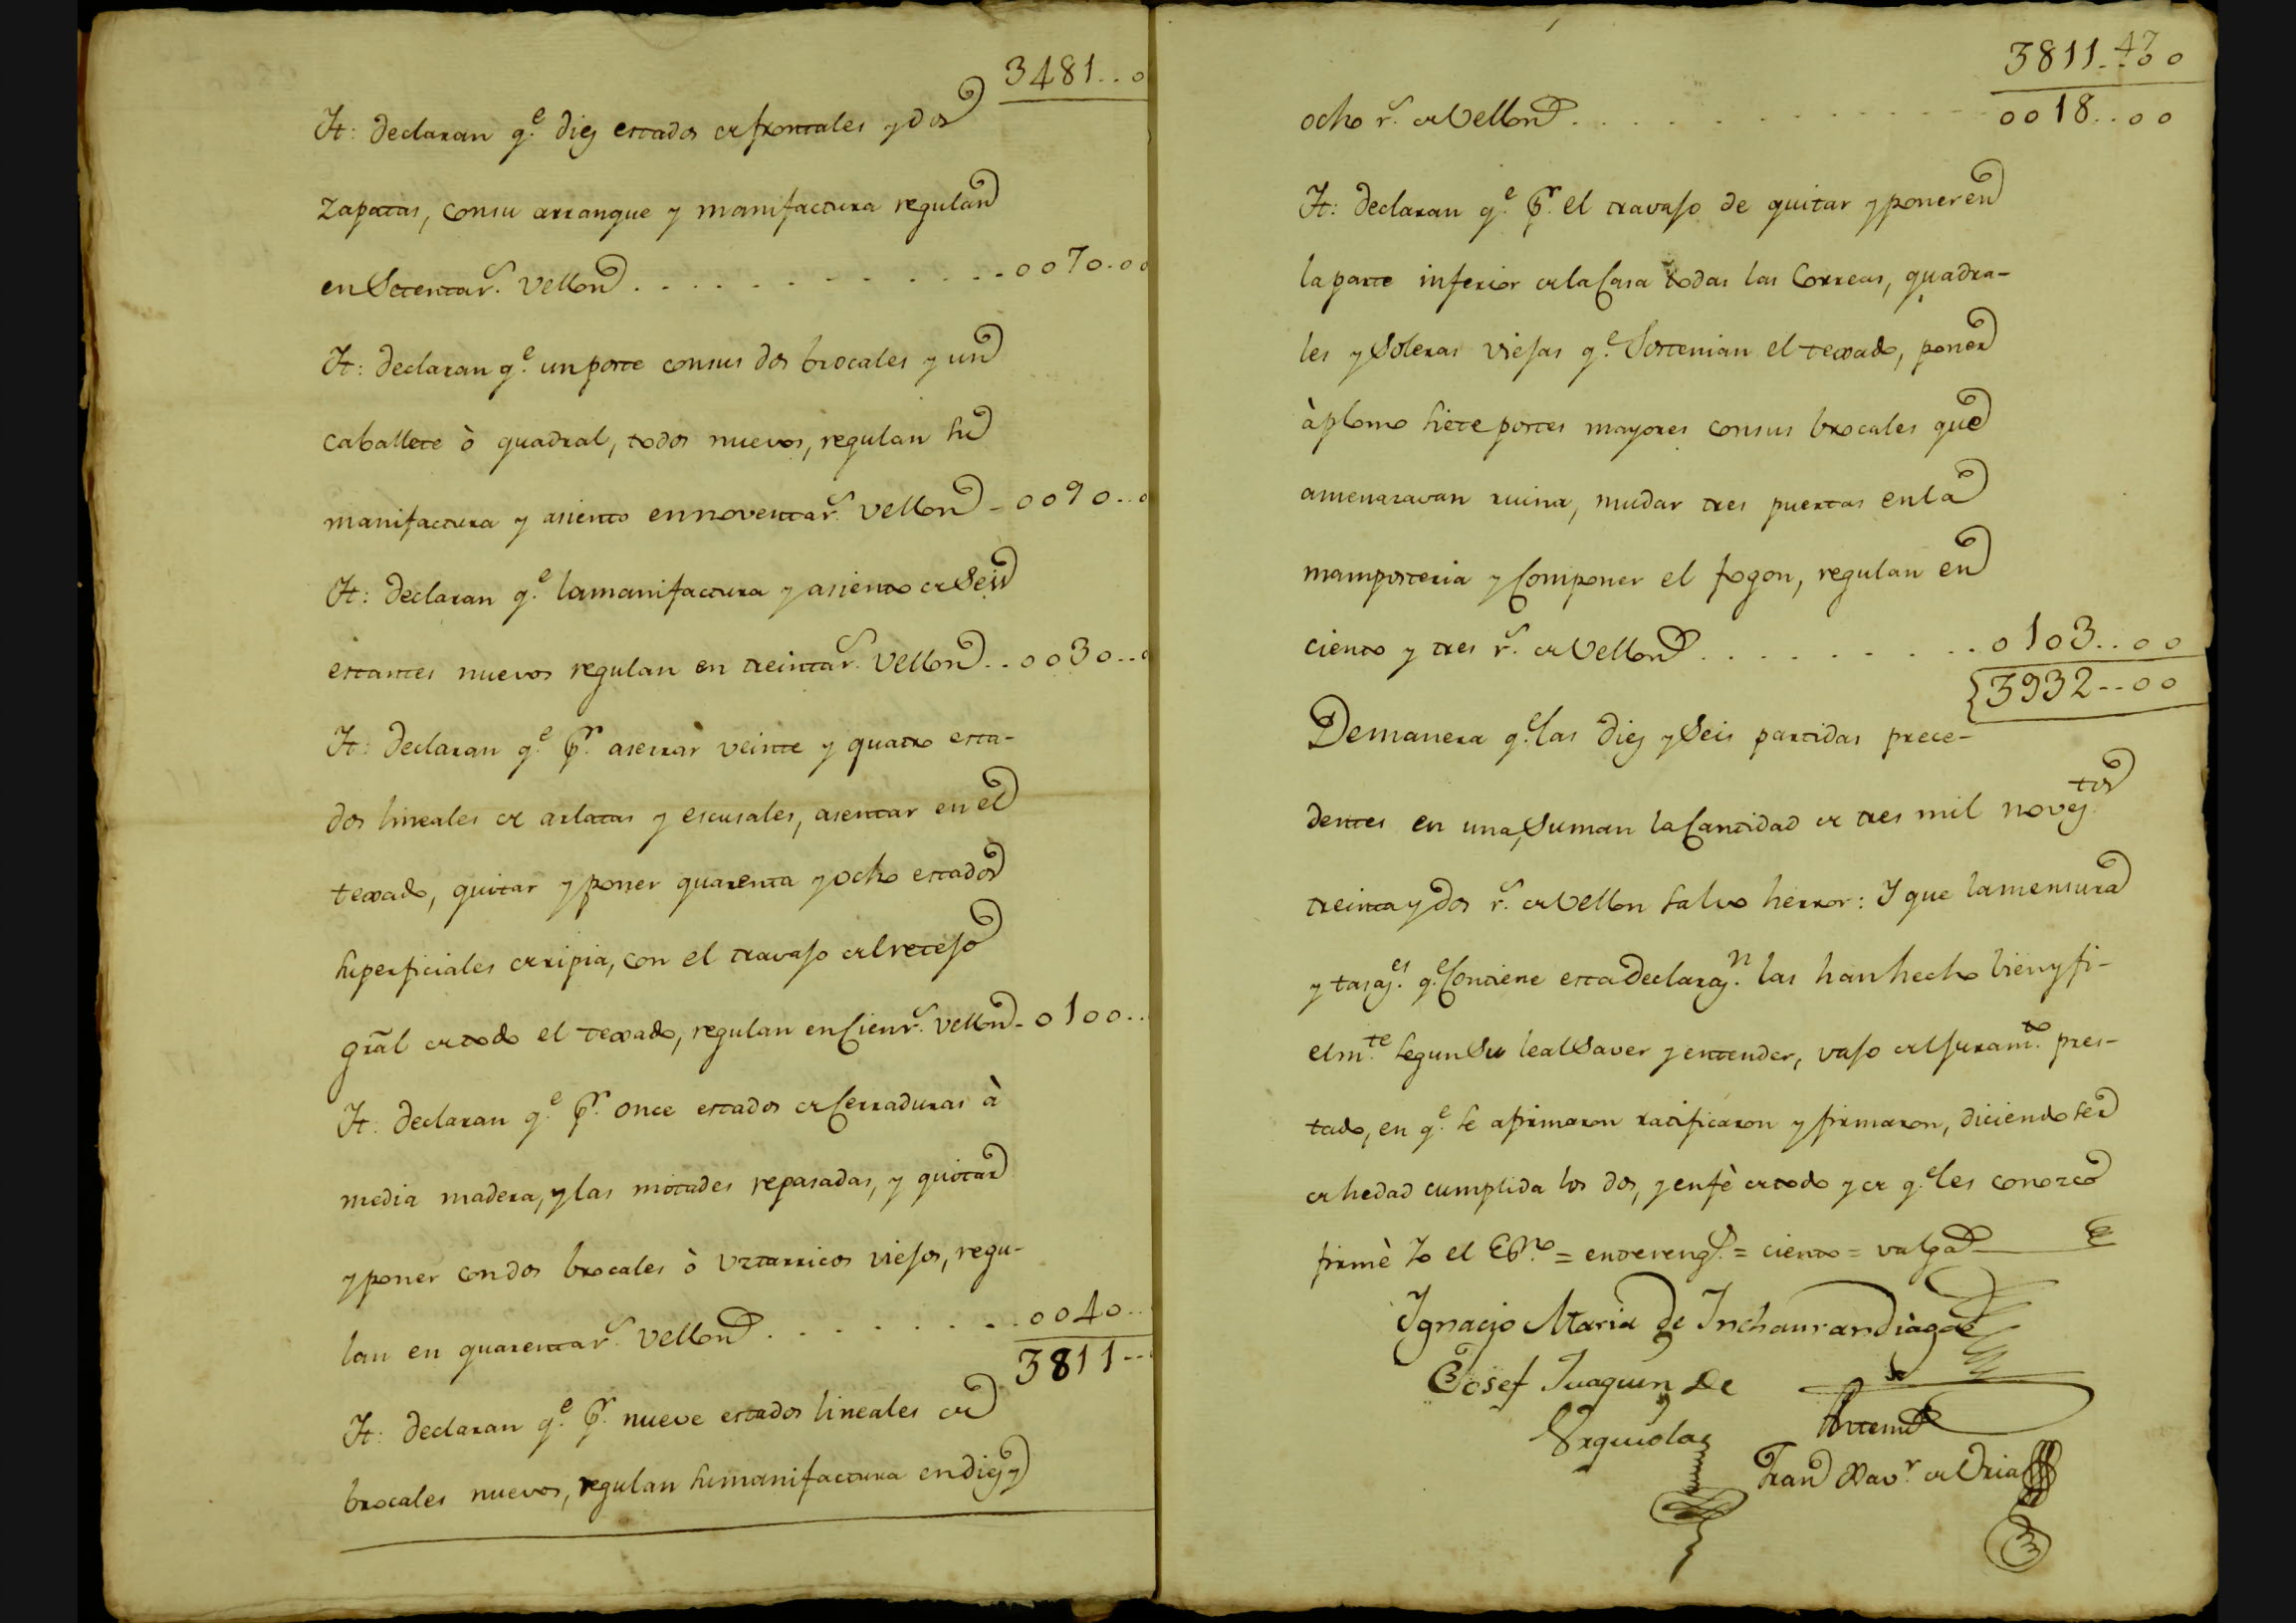 3481..0
It: declaran q.e diez estados de frontales y dos
zapatas, con su arranque y manifactura regulan
en Setenta r.s vellon . . . . . . . . . . . 0070.00
It: declaran q.e un poste con sus dos brocales y un
caballete ò quadral, todos nuevos, regulan su
manifactura y asiento en noventa r.s vellon - 0090..0
It: declaran q.e la manifactura y asiento de Seis
estantes nuevos regulan en treinta r.s vellon . . 0030..0
It: declaran q.e p.r aserrar veinte y quatro esta-
dos lineales de arlatas y escusales, asentar en el
texado, quitar y poner quarenta y ocho estados
superficiales de ripia, con el travajo del retejo
gral de todo el texado, regulan en Cien r.s vellon - 0100..
It: declaran q.e p.r once estados de Cerraduras à
media madera, y las mitades repasadas, y quitar
y poner con dos brocales ò uztarricos viejos, regu-
lan en quarenta r.s vellon . . . . . . . . 0040..
3811--
It: declaran q.e p.r nueve estados lineales de
brocales nuevos, regulan su manifactura en diez y
3811.. 00
ocho r.s de Vellon . . . . . . . . . . . 0018..00
It: declaran q.e p.r el travajo de quitar y poner en
la parte inferior de la Casa todas las Correas, quadra-
les y Soleras viejas q.e Sostenian el texado, poner
à plomo siete postes mayores con sus brocales que
amenazavan ruina, mudar tres puertas en la
mamposteria y Componer el fogon, regulan en
ciento y tres r.s de Vellon . . . . . . . . . 0103..00
3932--00
De manera q.e las diez y Seis partidas prece-
dentes en una, Suman la Cantidad de tres mil novez.tos
treinta y dos r.s de Vellon salvo herror: Y que la mensura
y tasaz.es q.e Contiene esta Declaraz.n las han hecho bien y fi-
elm.te segun Su leal Saver y entender, vajo del juram.to pres-
tado, en q.e se afirmaron ratificaron y firmaron, diciendo ser
de hedad cumplida los dos, y en fè de todo y de q.e les conozco
firmè Yo el Es.no = entrereng.s = ciento = valga
Ignazio Maria de Inchaurandiaga
Josef Juaquin De
Urquiola
Antemi
Fran Xav.r de Uria